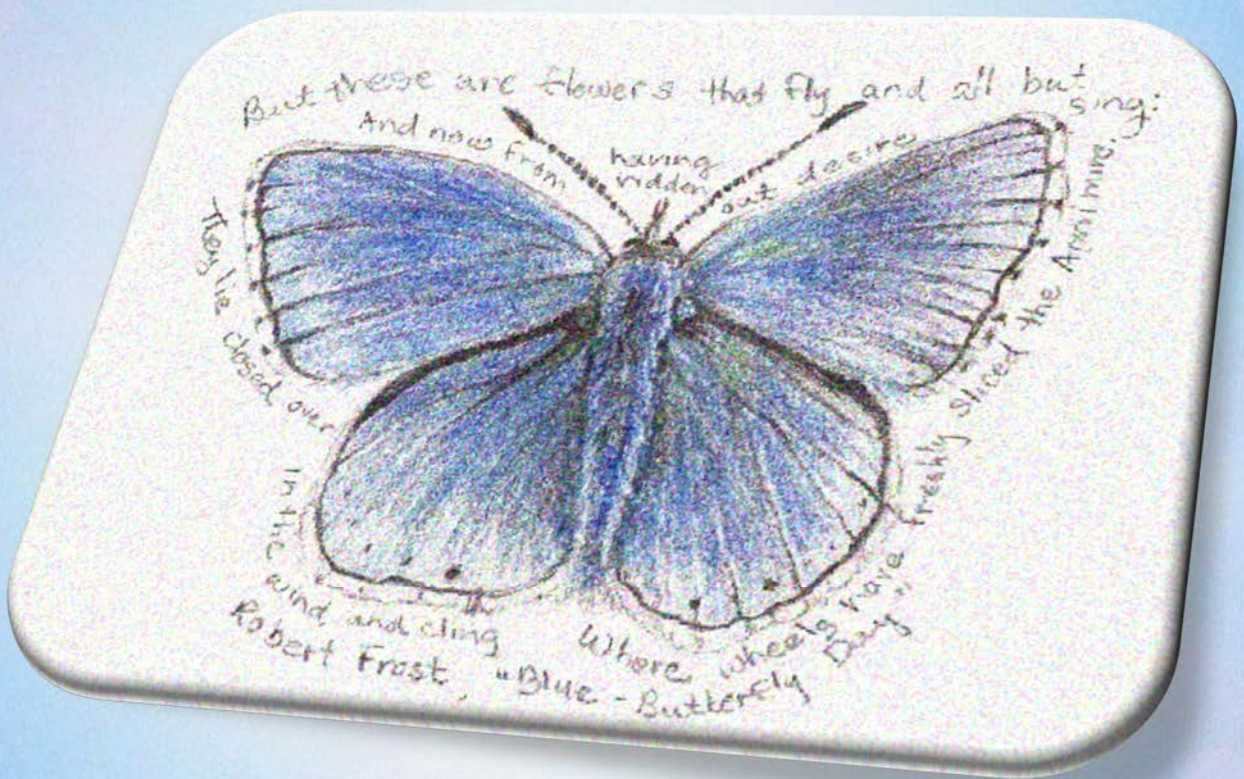 But these are flowers that fly and all but sing:
And now from having ridden out desire
They lie closed over
In the wind and cling
Where wheels have freshly sliced the April mire.
Robert Frost, "Blue-Butterfly Day"